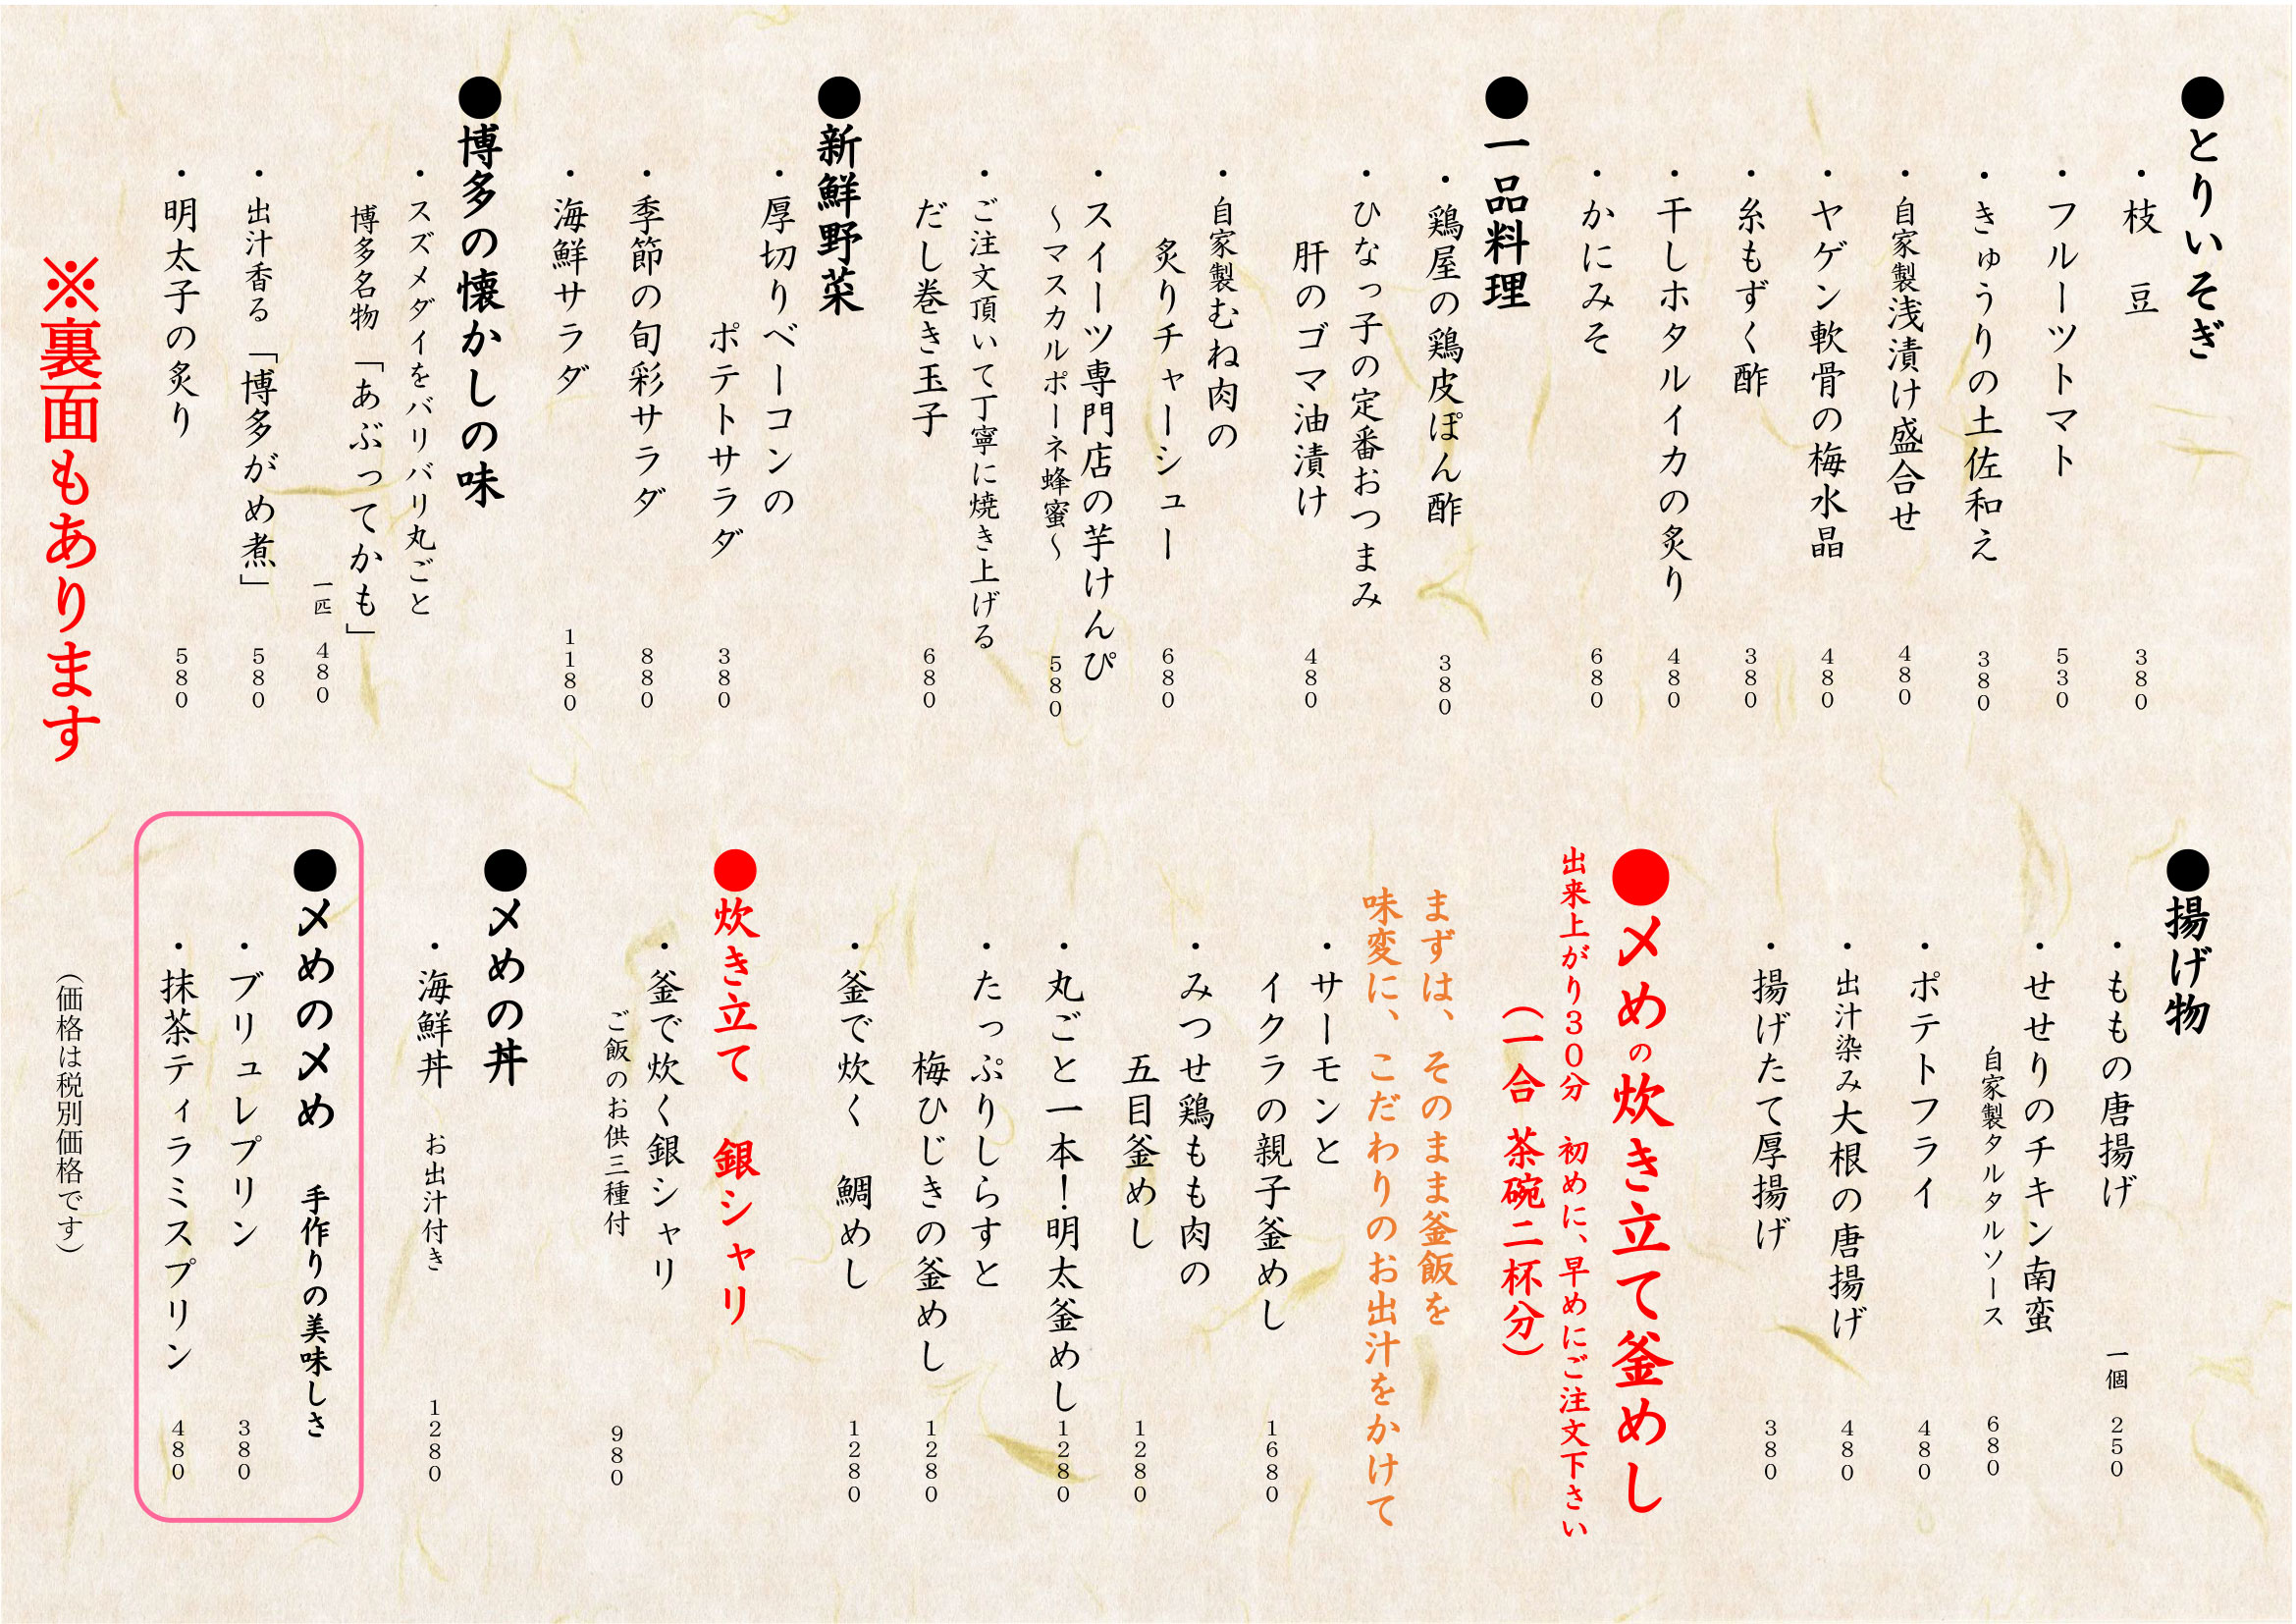 ●とりいそぎ
・枝 豆 380
・フルーツトマト 530
・きゅうりの土佐和え 380
・自家製浅漬け盛合せ 480
・ヤゲン軟骨の梅水晶 480
・糸もずく酢 380
・干しホタルイカの炙り 480
・かにみそ 680
●一品料理
・鶏屋の鶏皮ぽん酢 380
・ひなっ子の定番おつまみ
肝のゴマ油漬け 480
・自家製むね肉の
炙りチャーシュー 680
・スイーツ専門店の芋けんぴ
～マスカルポーネ蜂蜜～ 580
・ご注文頂いて丁寧に焼き上げる
だし巻き玉子 680
●新鮮野菜
・厚切りベーコンの
ポテトサラダ 380
・季節の旬彩サラダ 880
・海鮮サラダ 1180
●博多の懐かしの味
・スズメダイをバリバリ丸ごと
博多名物「あぶってかも」
一匹 480
・出汁香る「博多がめ煮」 580
・明太子の炙り 580
※裏面もあります
●揚げ物
・ももの唐揚げ 一個 250
・せせりのチキン南蛮
自家製タルタルソース 680
・ポテトフライ 480
・出汁染み大根の唐揚げ 480
・揚げたて厚揚げ 380
●〆めの炊き立て釜めし
出来上がり30分 初めに、早めにご注文下さい
（一合 茶碗二杯分）
まずは、そのまま釜飯を
味変に、こだわりのお出汁をかけて
・サーモンと
イクラの親子釜めし 1680
・みつせ鶏もも肉の
五目釜めし 1280
・丸ごと一本！明太釜めし 1280
・たっぷりしらすと
梅ひじきの釜めし 1280
・釜で炊く 鯛めし 1280
●炊き立て 銀シャリ
・釜で炊く銀シャリ
ご飯のお供三種付 980
●〆めの丼
・海鮮丼 お出汁付き 1280
●〆めの〆め 手作りの美味しさ
・ブリュレプリン 380
・抹茶ティラミスプリン 480
（価格は税別価格です）